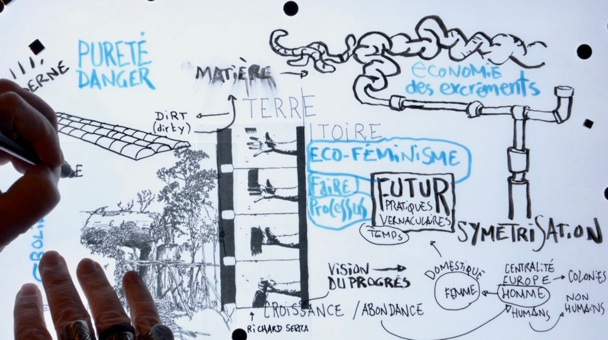 PURETÉ
DANGER
MATIÈRE
économie
des excréments
DiRT
(dirty)
TERRE
ITOIRE
ECO-FÉMINISME
FAIRE
PROCESSUS
FUTUR
PRATIQUES
VERNACULAIRES
TEMPS
SYMETRISATION
VISION
DU PROGRÈS
CROISSANCE / ABONDANCE
RICHARD SERRA
DOMESTIQUE
FEMME
CENTRALITÉ
EUROPE
HOMME
HUMAINS
COLONIES
NON
HUMAINS